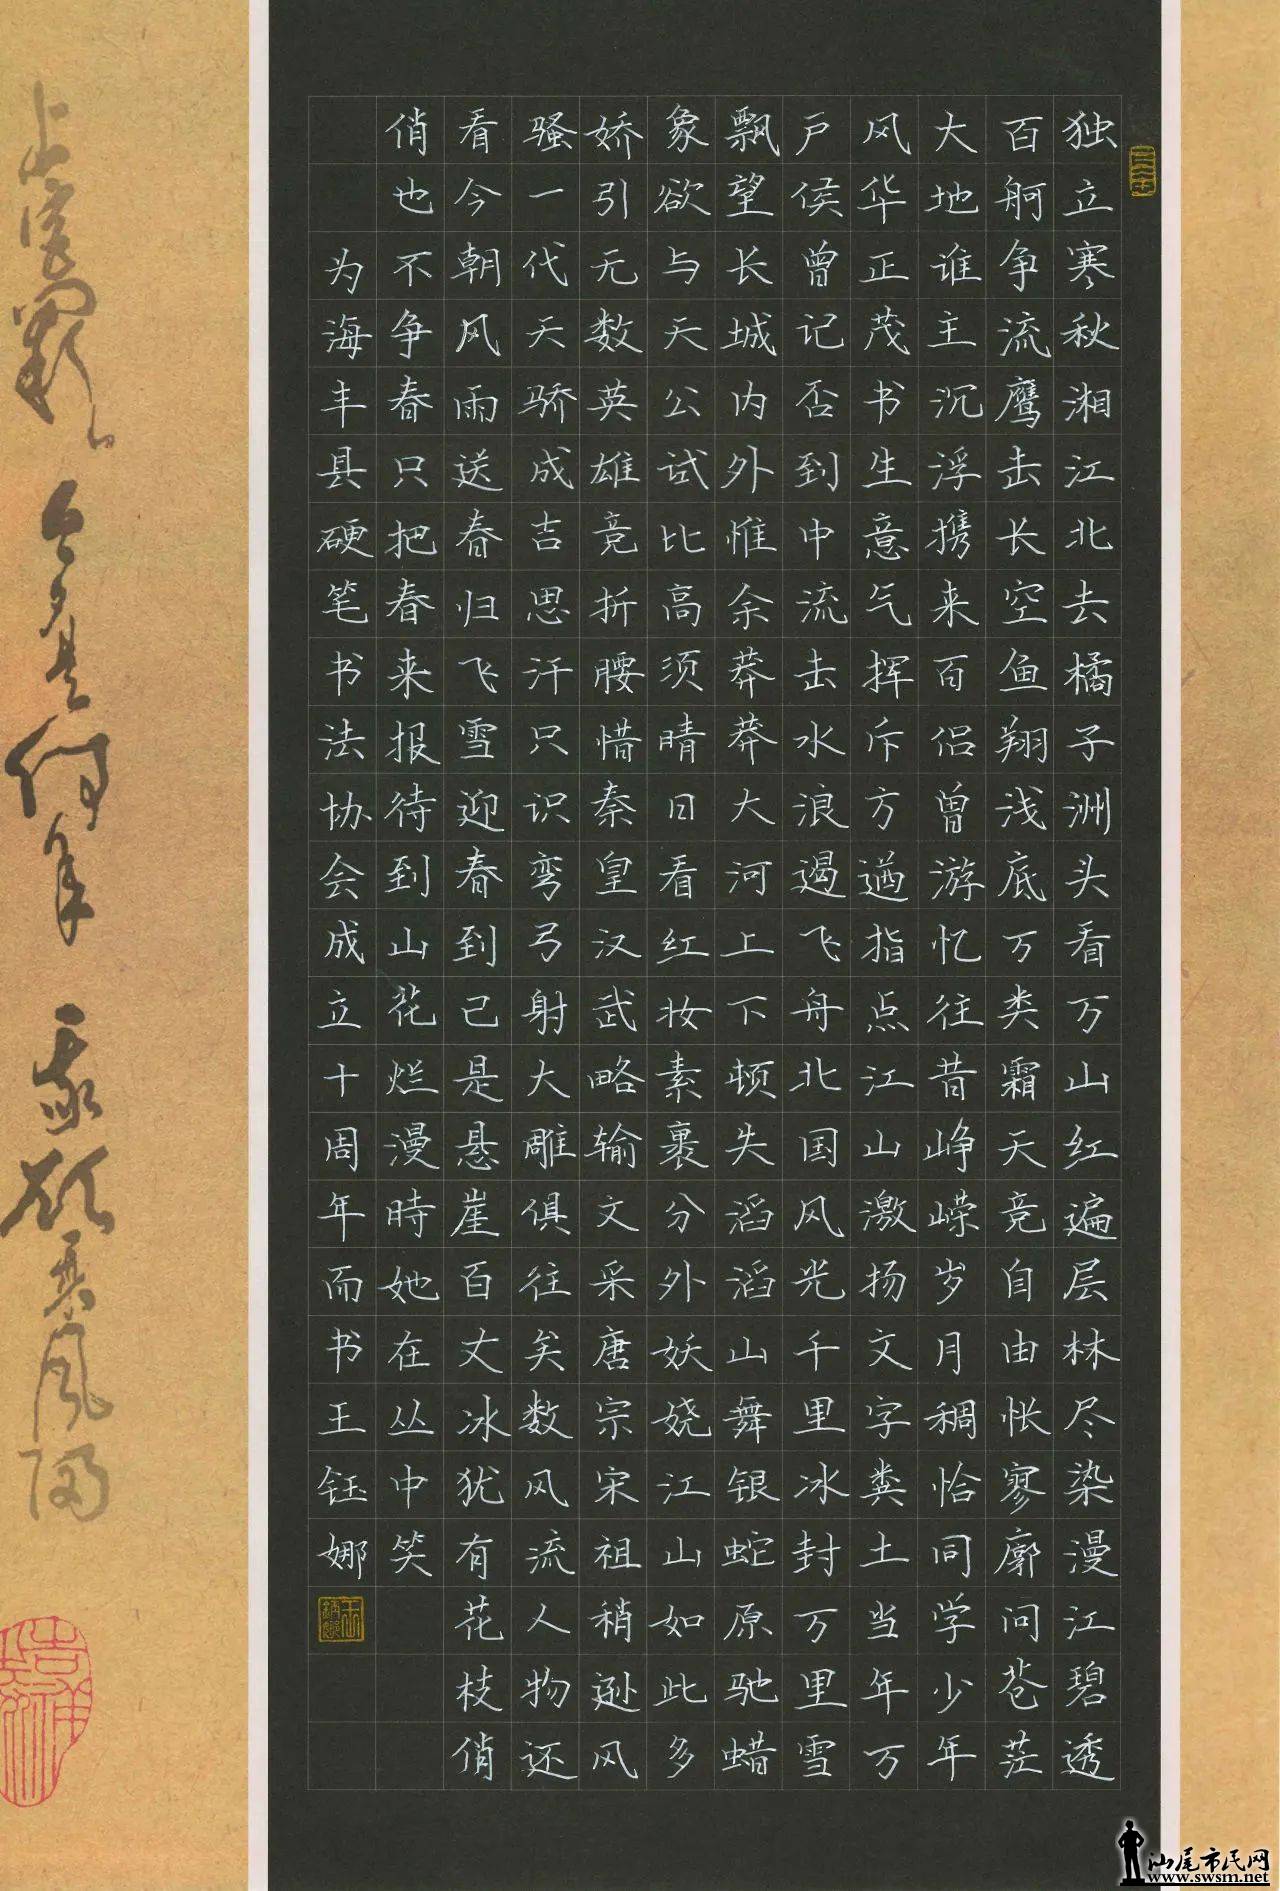 独立寒秋湘江北去橘子洲头看万山红遍层林尽染漫江碧透
百舸争流鹰击长空鱼翔浅底万类霜天竞自由怅寥廓问苍茫
大地谁主沉浮携来百侣曾游忆往昔峥嵘岁月稠恰同学少年
风华正茂书生意气挥斥方遒指点江山激扬文字粪土当年万
户侯曾记否到中流击水浪遏飞舟北国风光千里冰封万里雪
飘望长城内外惟余莽莽大河上下顿失滔滔山舞银蛇原驰蜡
象欲与天公试比高须晴日看红妆素裹分外妖娆江山如此多
娇引无数英雄竞折腰惜秦皇汉武略输文采唐宗宋祖稍逊风
骚一代天骄成吉思汗只识弯弓射大雕俱往矣数风流人物还
看今朝风雨送春归飞雪迎春到已是悬崖百丈冰犹有花枝俏
俏也不争春只把春来报待到山花烂漫時她在丛中笑
为海丰县硬笔书法协会成立十周年而书王钰娜
汕尾市民网
www.swsm.net